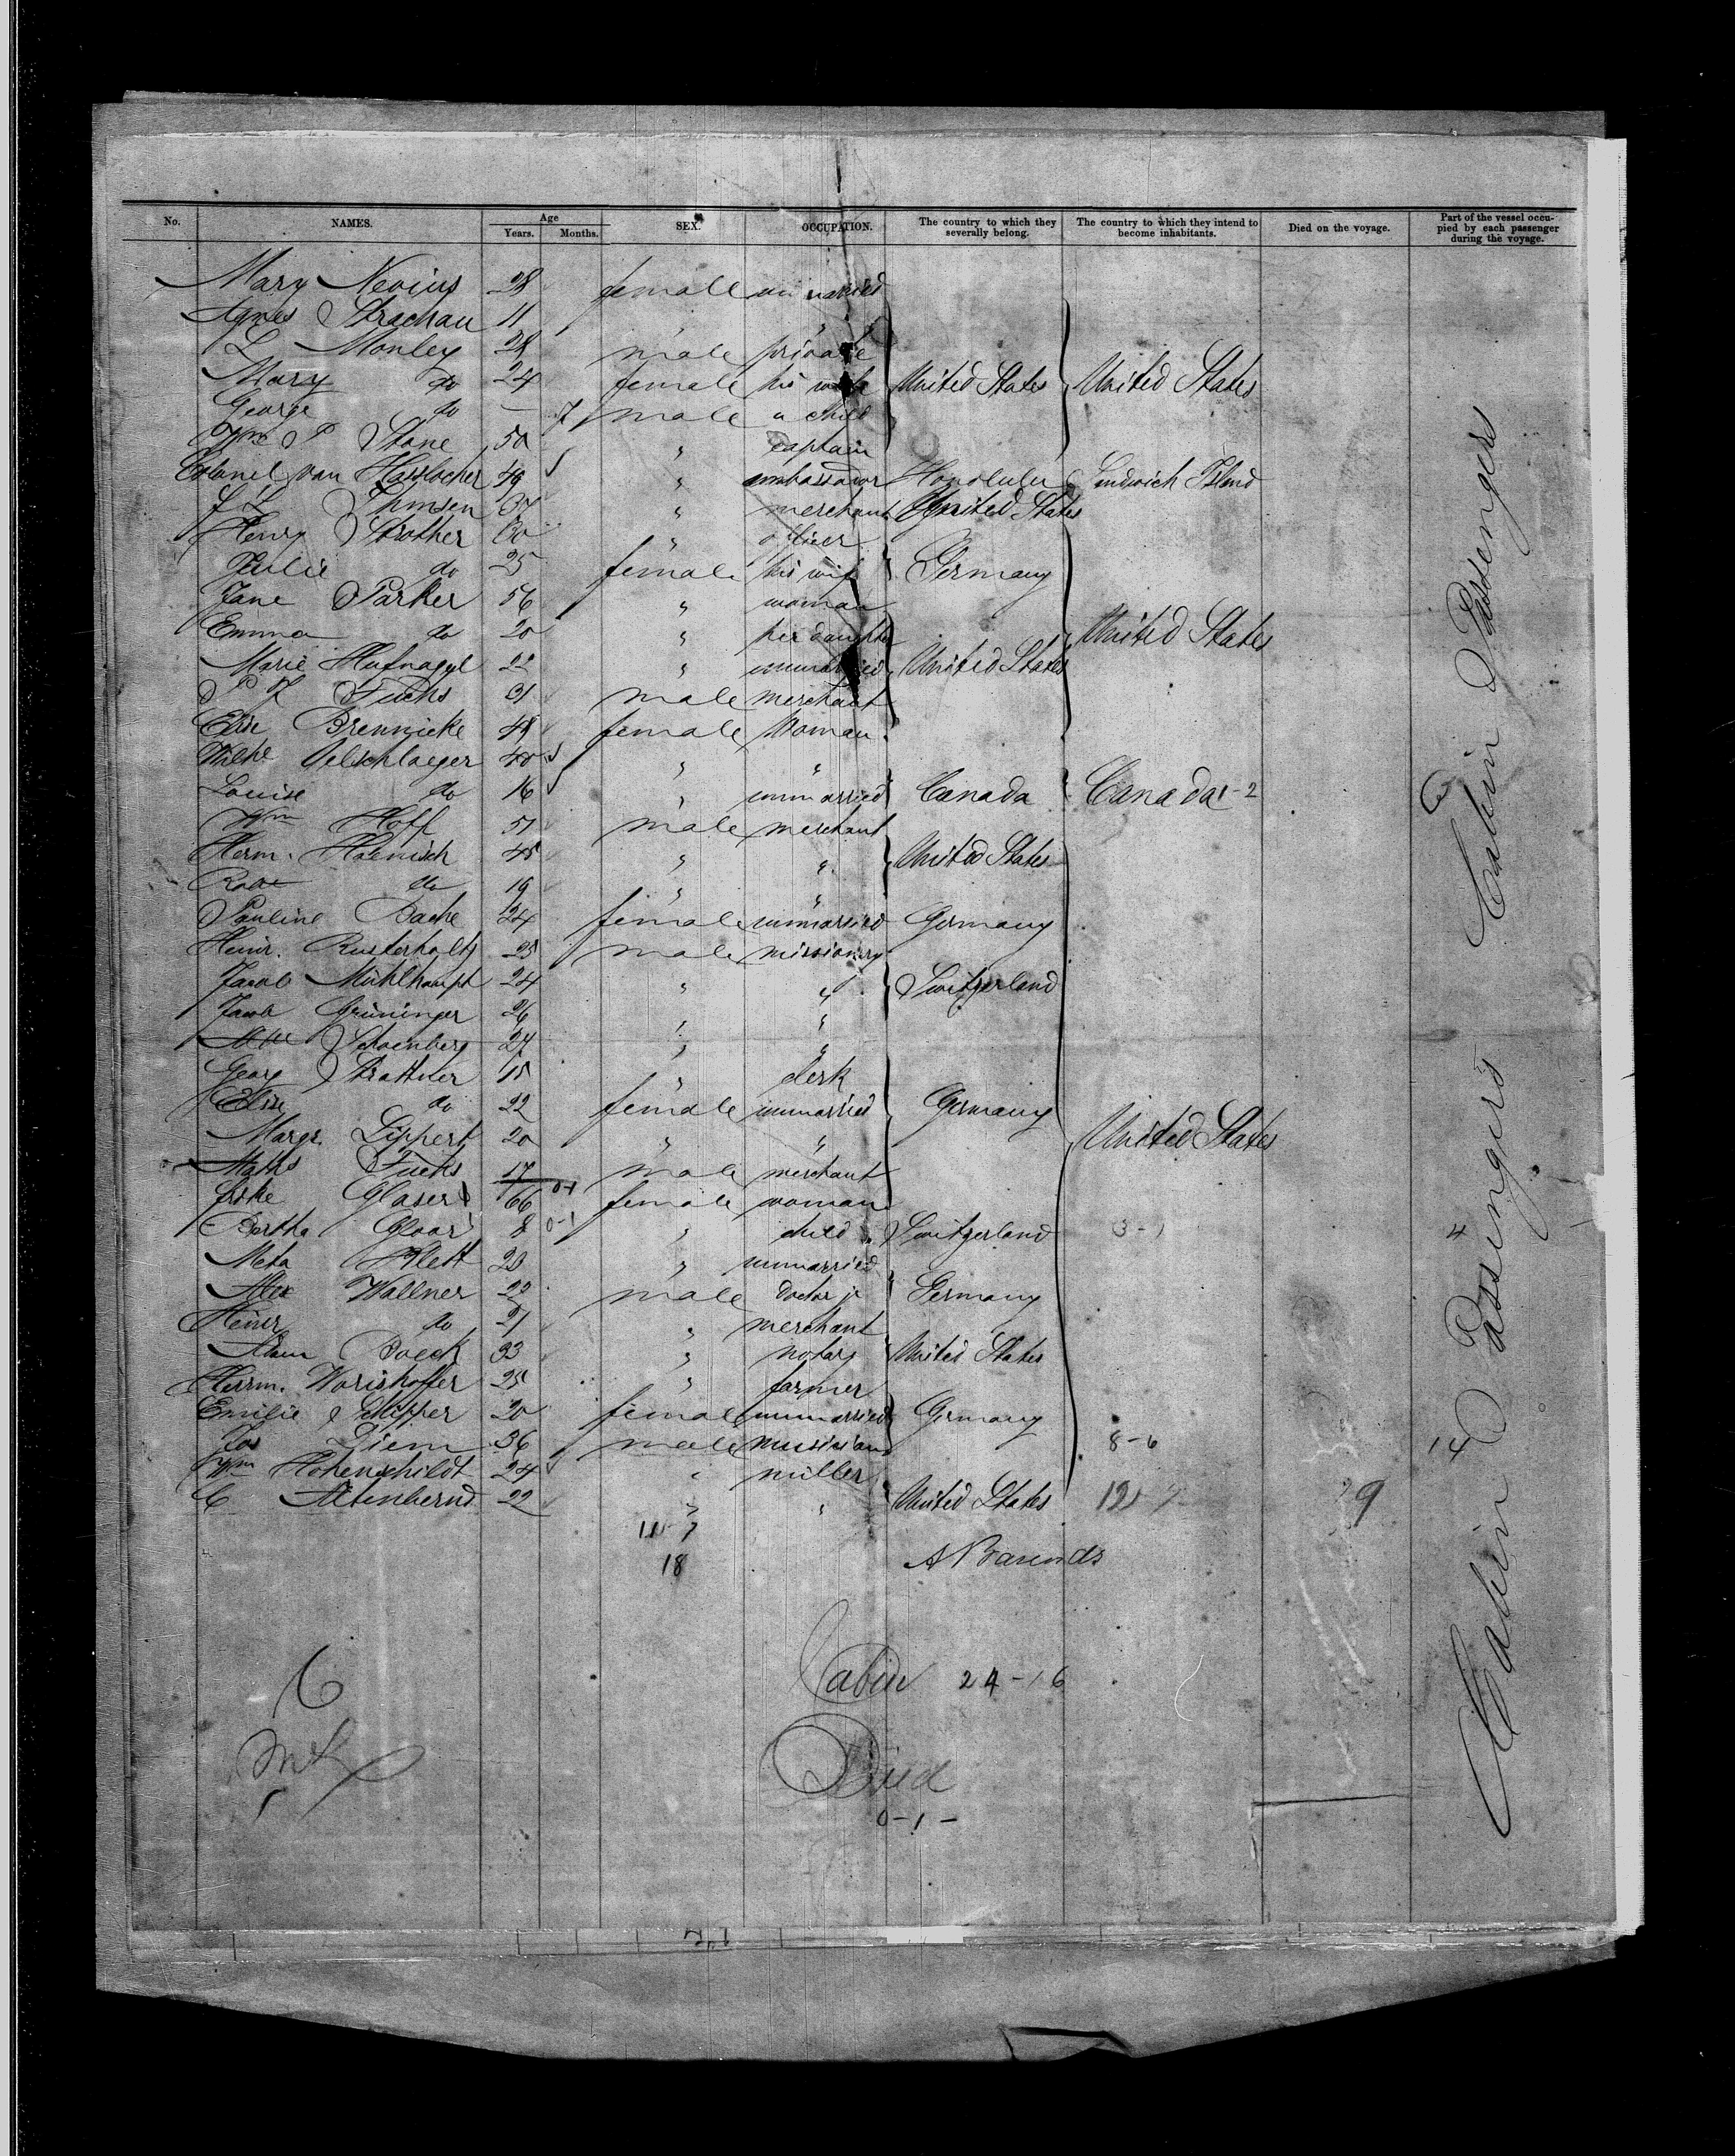 No. NAMES. Age Years. Months. SEX. OCCUPATION. The country to which they severally belong. The country to which they intend to become inhabitants. Died on the voyage. Part of the vessel occupied by each passenger during the voyage.
Mary Nevius 28 female unmarried
Agnes Strachan 11 " "
L Monley 28 male private
Mary do 24 female his wife United States United States
George do — 7 male a child
Wm P Stone 50 " captain
Colonel van 49 " ambassador Honolulu Sandwich Island
Thomsen 37 " merchant United States
Henry Strother 30 " officer
Julie do 25 female his wife Germany
Jane Parker 56 " woman
Emma do 20 " her daughter United States
Marie Hufnagel 22 " unmarried United States
P J Fuchs 31 male merchant
Elise Brennicke 48 female Woman
Oelschlaeger 40 " "
Louise do 16 " unmarried Canada Canada 1-2
Wm Hoff 51 male merchant
Herm. Haenisch 45 " " United States
Robt do 19 " "
Pauline Bache 24 female unmarried Germany
Heinr. Rusterholtz 25 male missionary
Jacob Mühlhaupt 24 " " Switzerland
Jacob Grüninger 26 " "
Schoenberg 27 " "
Georg Strattner 15 " clerk
Elise do 22 female unmarried Germany
Margr. Lippert 20 " " United States
Maths Fuchs 17 male merchant
Glaser 66 0-1 female woman
Bertha Gloor 8 0-1 " child Switzerland
Meta Klett 20 " unmarried
Alex Wallner 22 male doctor jr Germany
Heinr do 21 " merchant
Adam Boeck 33 " notary United States
Herrm. Worishoffer 25 " farmer
Emilie Schipper 20 female unmarried Germany
Jos Diem 36 male musician 8-6
Wm Hohenschildt 24 " miller
C Altenbernd 22 " " United States 29
18 A Barends
Cabin Passengers
Cabin Passengers
Cabin 24-16
Died
0-1-